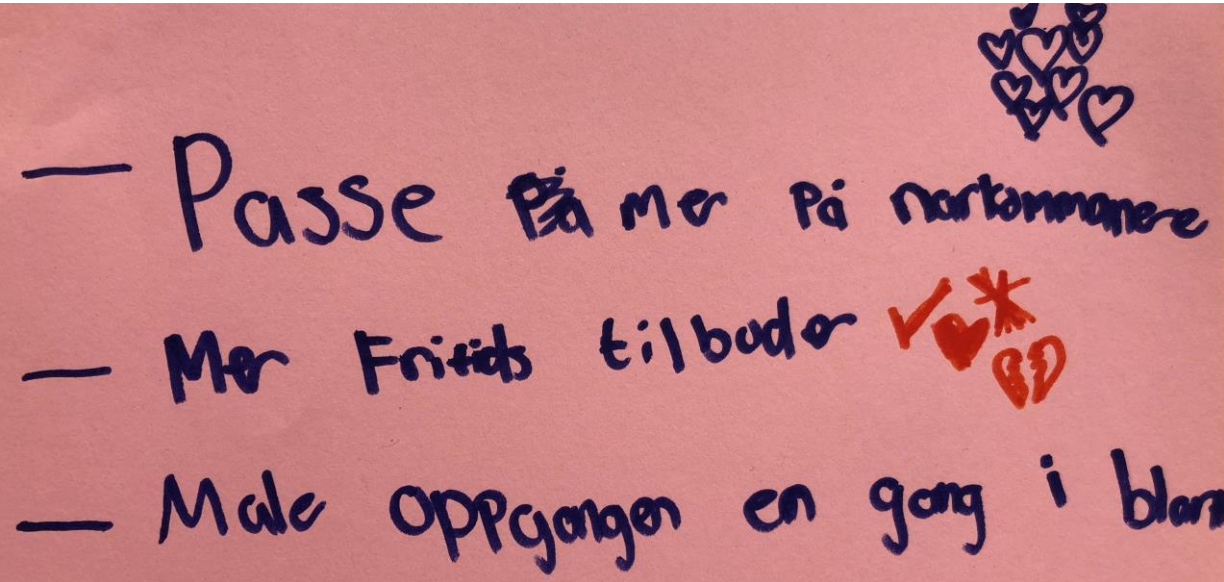 — Passe mer på narkommanere
— Mer Fritids tilbuder
— Male oppgangen en gang i blan